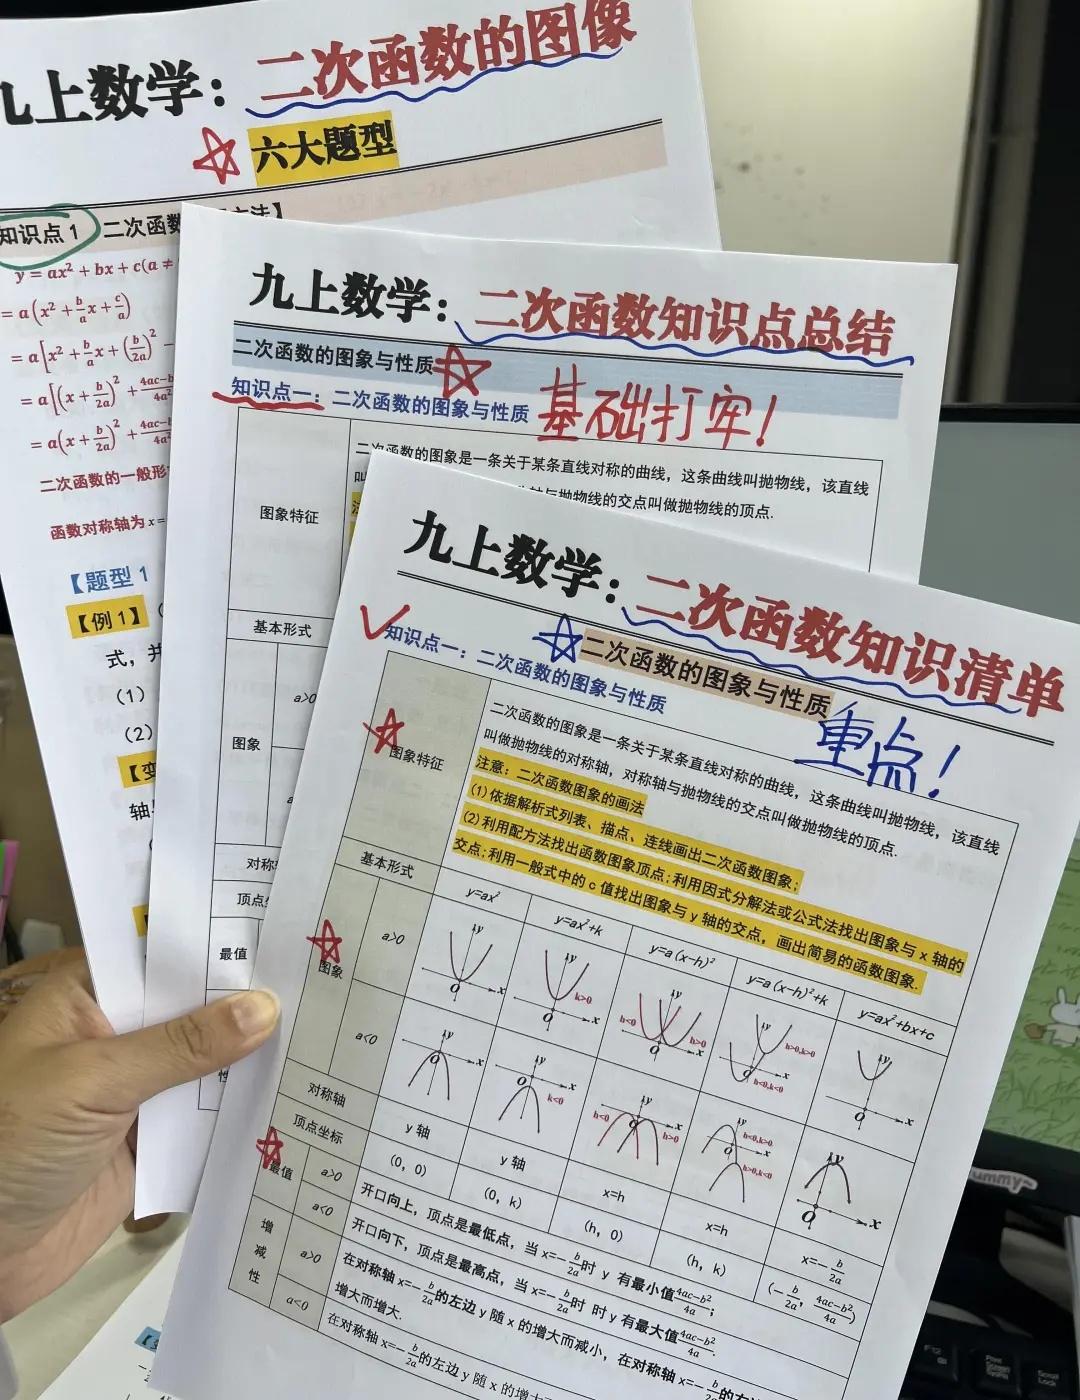 九上数学：二次函数的图像
六大题型
知识点1 二次函数
y = ax² + bx + c(a ≠
= a(x² + b/a x + c/a)
= a[x² + b/a x + (b/2a)² −
= a[(x + b/2a)² + 4ac−b
= a(x + b/2a)² + 4ac−
二次函数的一般形
函数对称轴为 x =
【题型 1
【例 1】
式，并
（1）
（2）
【变
轴
九上数学：二次函数知识点总结
二次函数的图象与性质
知识点一：二次函数的图象与性质
基础打牢！
二次函数的图象是一条关于某条直线对称的曲线，这条曲线叫抛物线，该直线
与抛物线的交点叫做抛物线的顶点.
图象特征
基本形式
图象
a>0
对称
顶点
最值
性
九上数学：二次函数知识清单
二次函数的图象与性质
知识点一：二次函数的图象与性质
重点！
图象特征
二次函数的图象是一条关于某条直线对称的曲线，这条曲线叫抛物线，该直线
叫做抛物线的对称轴，对称轴与抛物线的交点叫做抛物线的顶点.
注意：二次函数图象的画法
(1)依据解析式列表、描点、连线画出二次函数图象；
(2)利用配方法找出函数图象顶点；利用因式分解法或公式法找出图象与 x 轴的
交点；利用一般式中的 c 值找出图象与 y 轴的交点，画出简易的函数图象.
基本形式 y=ax² y=ax²+k y=a(x-h)² y=a(x-h)²+k y=ax²+bx+c
图象
a>0
y x O
y k>0 x O
h<0 y h>0 x O
y h>0,k>0 h<0,k<0 x O
y x O
a<0
y x O
y x O k<0
h<0 y h>0 x O
y h<0,k>0 h>0,k<0 x O
y x O
对称轴 y 轴 y 轴 x=h x=h x=−b/2a
顶点坐标 (0，0) (0，k) (h，0) (h，k) (−b/2a，4ac−b²/4a)
最值
a>0 开口向上，顶点是最低点，当 x=−b/2a时 y 有最小值4ac−b²/4a；
a<0 开口向下，顶点是最高点，当 x=−b/2a时 时 y 有最大值4ac−b²/4a.
增减性
a>0 在对称轴 x=−b/2a的左边 y 随 x 的增大而减小，在对称轴 x=−b/2a的右
增大而增大.
a<0 在对称轴 x=−b/2a的左边 y 随 x 的增大
ummy
F12
Scroll
Lock